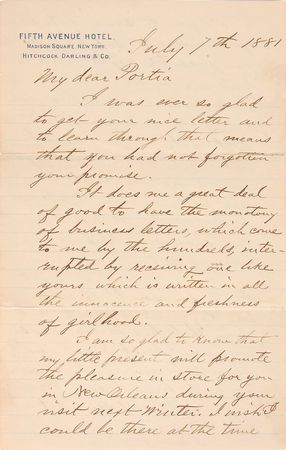 FIFTH AVENUE HOTEL.
MADISON SQUARE, NEW YORK.
HITCHCOCK, DARLING & CO.
July 7th 1881
My dear Portia
I was ever so glad
to get your nice letter and
to learn through that means
that you had not forgotten
your promise.
It does me a great deal
of good to have the monotony
of business letters, which come
to me by the hundreds, inter-
rupted by receiving one like
yours which is written in all
the innocence and freshness
of girlhood.
I am so glad to know that
my little present will promote
the pleasure in store for you
in New Orleans during your
visit next Winter. I wish I
could be there at the time